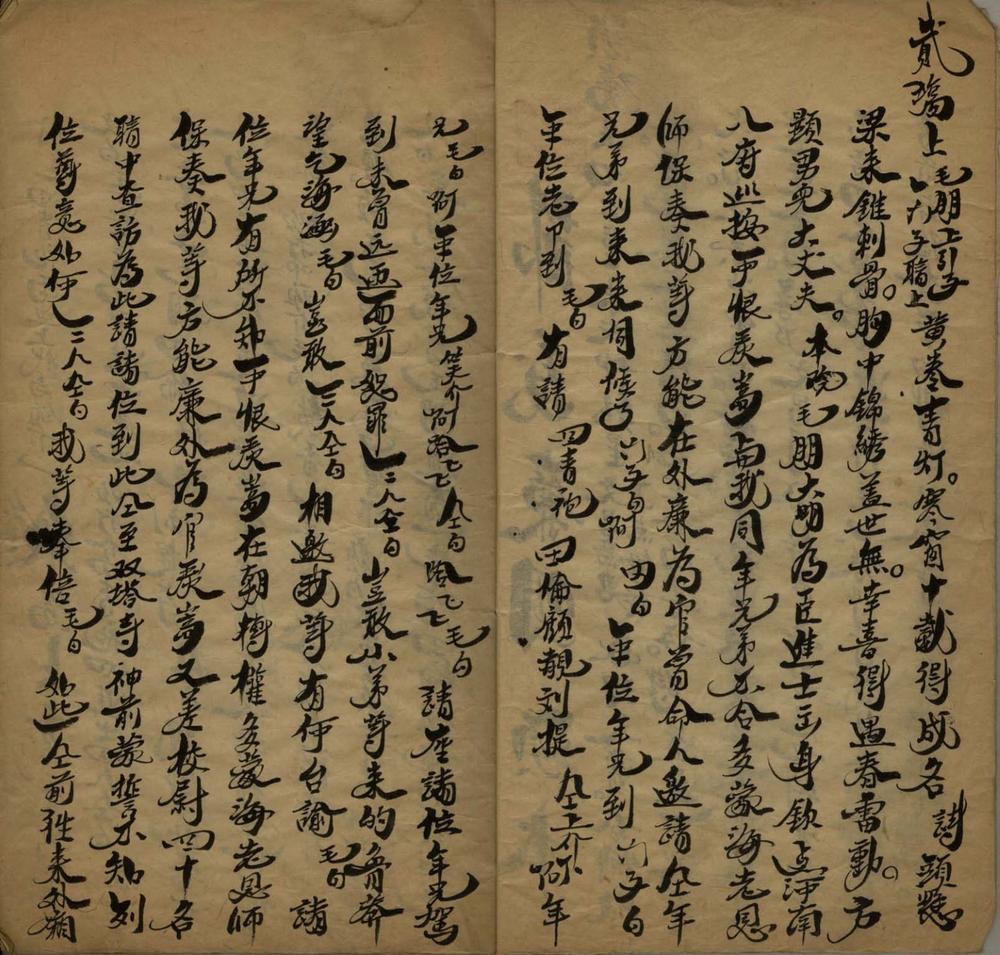 貳場上 毛朋上引子 六子暗上 黃卷青灯。寒窗十載得成名 詩 頭懸
梁來錐刺骨。胸中錦綉蓋世無。幸喜得遇春雷動。方
顯男兒大丈夫。本院毛朋大明為臣進士出身欽点河南
八府巡按可恨炎嵩与我同年兄弟不合多蒙海老恩
師保奏我等方能在外廉為官曾命人邀請仝年
兄弟到來來伺候了 六子白 啊 田白 年位年兄到 六子白
年位老卩到 毛白 有請 四青袍 田倫顧覩刘提 仝上介 你年
兄 毛白 啊年位年兄 笑介 啊哈匕匕 仝白 哈匕匕 毛白 請座諸位年兄駕
到未曾远迎面前恕罪 三人仝白 豈敢小弟等来的鲁莽
望乞海涵 毛白 豈敢 三人仝白 相邀我等有何台諭 毛白 諸
位年兄有所不知可恨炎嵩在朝樹權多蒙海老恩師
保奏我等方能廉外為官炎嵩又差校尉四十名
暗中查訪為此請諸位到此仝至双塔寺神前蒙誓不知列
位尊意如何 三人仝白 我等奉倍 毛白 如此仝前往來外廂